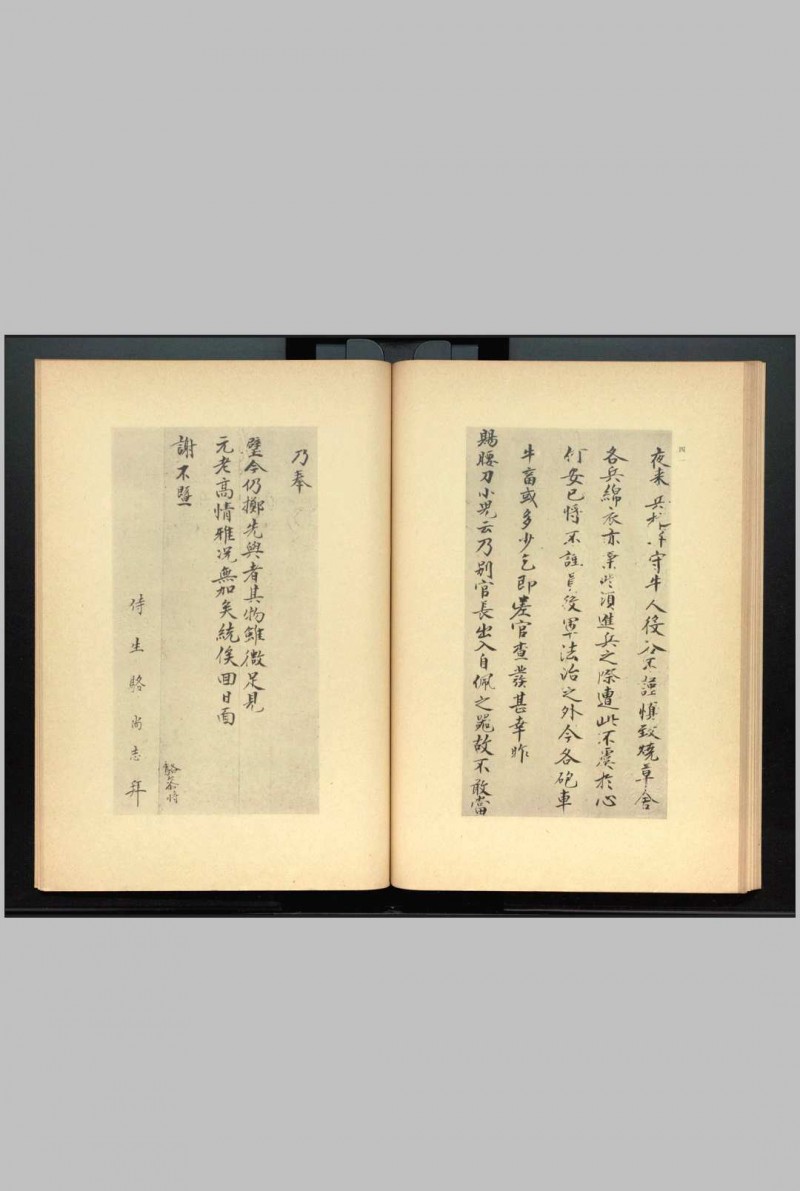 四一
夜來兵 守牛人役 不謹慎致燒草舍
各兵綿衣亦 此須進兵之際遭此不虞於心
何安已將不謹員役軍法治之外今各砲車
牛畜或多少乞即差官查發甚幸昨
賜腰刀小兒云乃別官長出入自佩之 故不敢當
乃奉
璧今仍擲先與者其物雖微足見
元老高情雅況無加矣統俟回日面
謝不暨
侍生駱尚志拜
駱參將